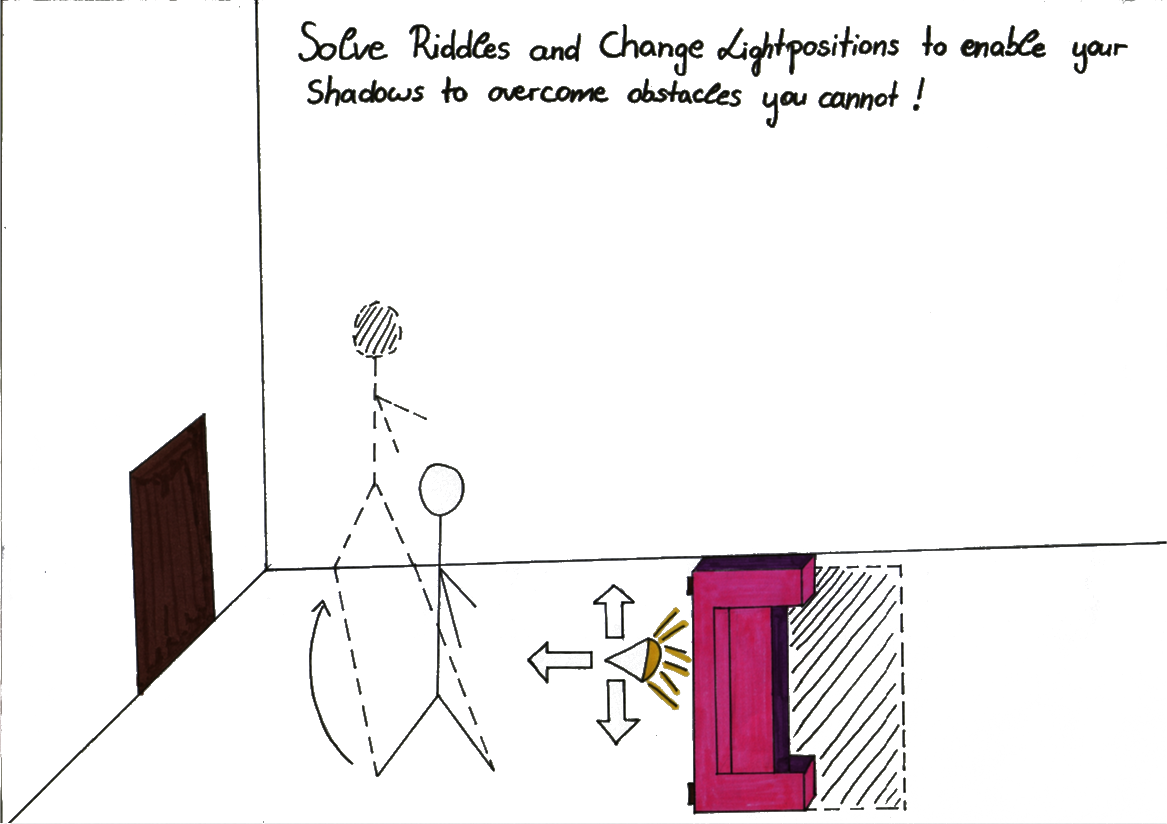 Solve Riddles and Change Lightpositions to enable your
Shadows to overcome obstacles you cannot!